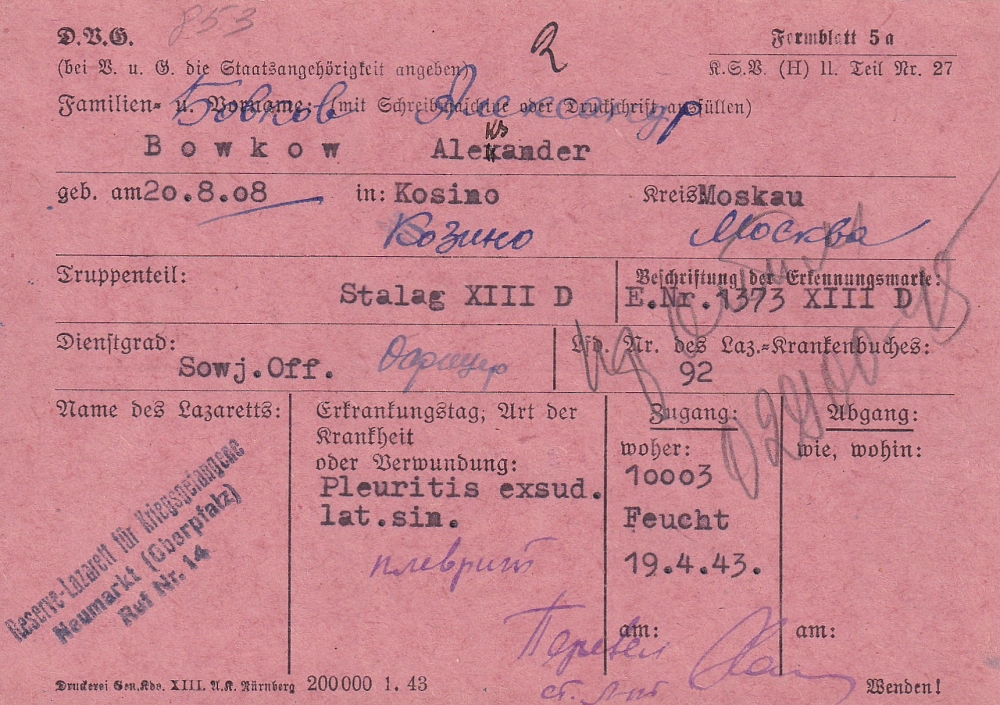 853
D.V.G.
R
Formblatt 5a
(bei V. u. G. die Staatsangehörigkeit angeben)
K.S.V. (H) 11. Teil Nr. 27
Familien= u. Vorname: (mit Schreibmaschine oder Druckschrift ausfüllen)
Бовков Александр
Bowkow Alexander
geb. am 20.8.08 in: Kosino Kreis Moskau
Козино Москва
Truppenteil: Stalag XIII D
Beschriftung der Erkennungsmarke:
E.Nr. 1373 XIII D
Dienstgrad: Sowj.Off. Офицер
Lfd. Nr. des Laz.=Krankenbuches:
92
Name des Lazaretts:
Reserve-Lazarett für Kriegsgefangene
Neumarkt (Oberpfalz)
Ruf Nr. 14
Erkrankungstag, Art der
Krankheit
oder Verwundung:
Pleuritis exsud.
lat.sin.
плеврит
Zugang:
woher:
10003
Feucht
19.4.43.
am:
Abgang:
wie, wohin:
am:
Перевел
ст. л-т
Druckerei Gen.Kdo. XIII. A.K. Nürnberg 200000 1. 43
Wenden!